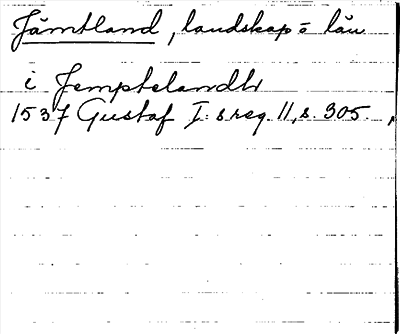 Jämtland, landskap o län
i Jemptelandh
1537 Gustaf I:s reg. 11, s. 305.